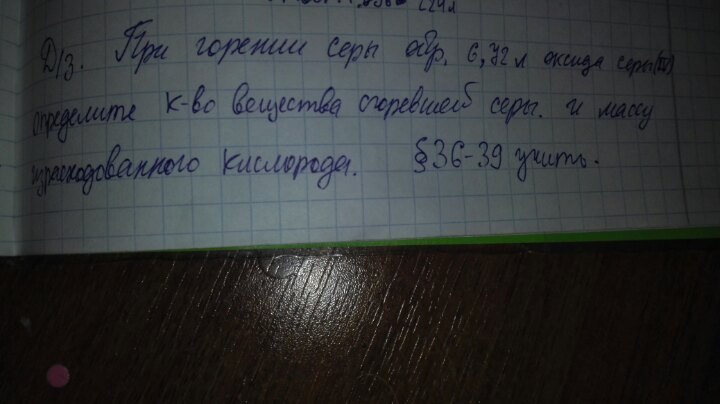 224л
Д/з. При горении серы обр. 6,72 л оксида серы (IV)
определите к-во вещества сгоревшей серы. и массу
израсходованного кислорода. §36-39 учить.